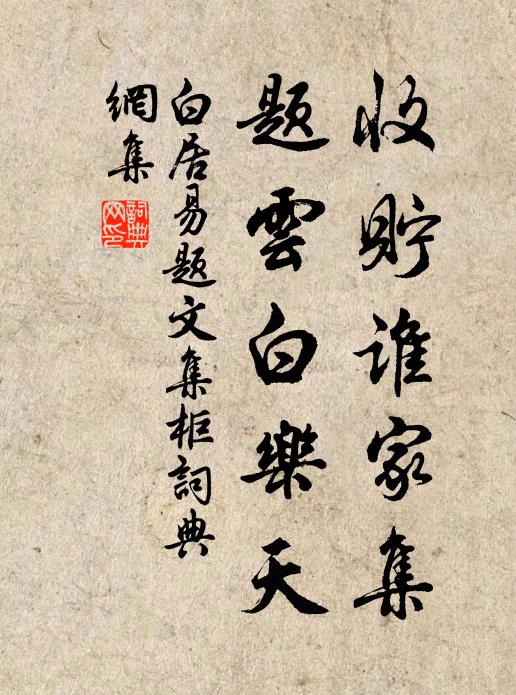 收貯誰家集
題雲白樂天
白居易題文集柜詞典
網集
詞典網印